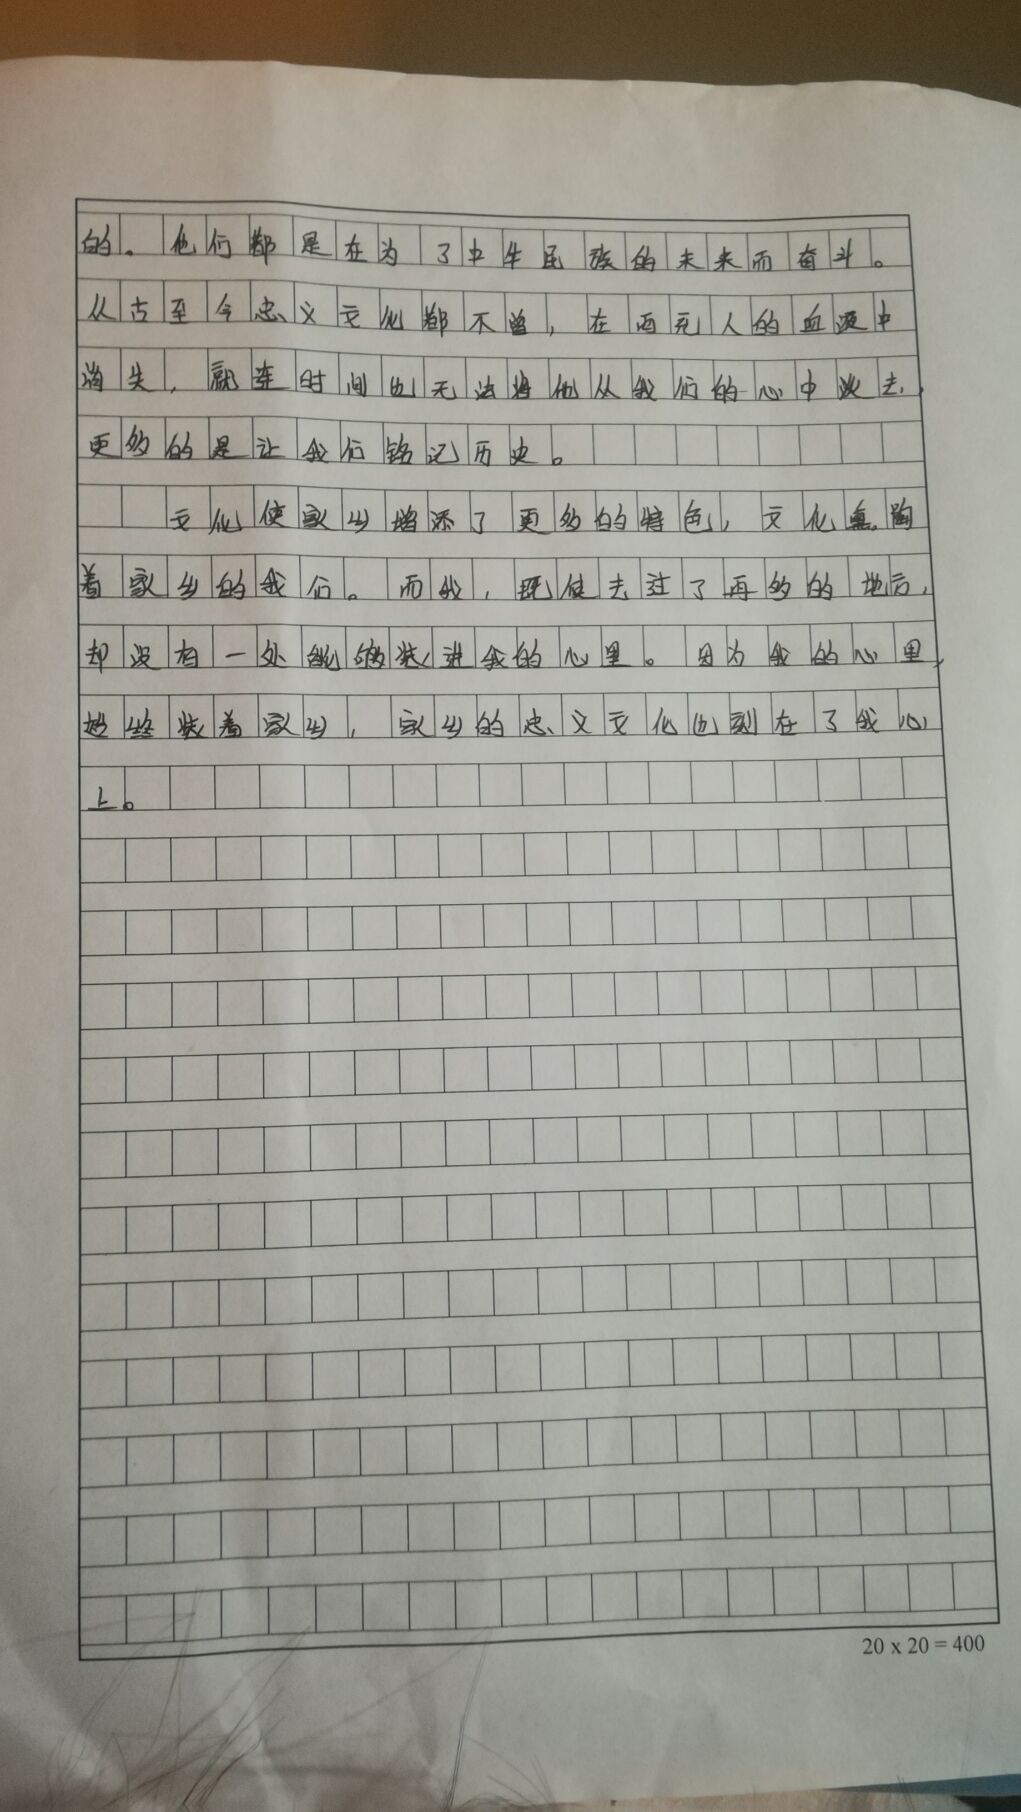 的。他们都是在为了中华民族的未来而奋斗。
从古至今忠义文化都不曾，在西充人的血液中
消失，就连时间也无法将他从我们的心中淡去，
更多的是让我们铭记历史。
文化使家乡增添了更多的特色，文化熏陶
着家乡的我们。而我，既使去过了再多的地方，
却没有一处能够装进我的心里。因为我的心里，
始终装着家乡，家乡的忠义文化也刻在了我心
上。
20 x 20 = 400